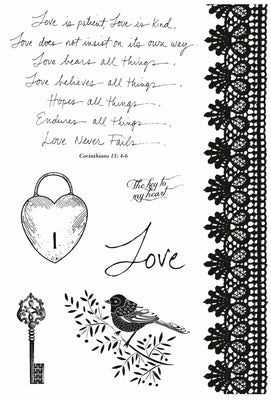 Love is patient, Love is kind.
Love does not insist on its own way
Love bears all things.
Love believes all things.
Hopes all things.
Endures all things.
Love Never Fails.
Corinthians 13: 4-6
The key to
my heart
Love